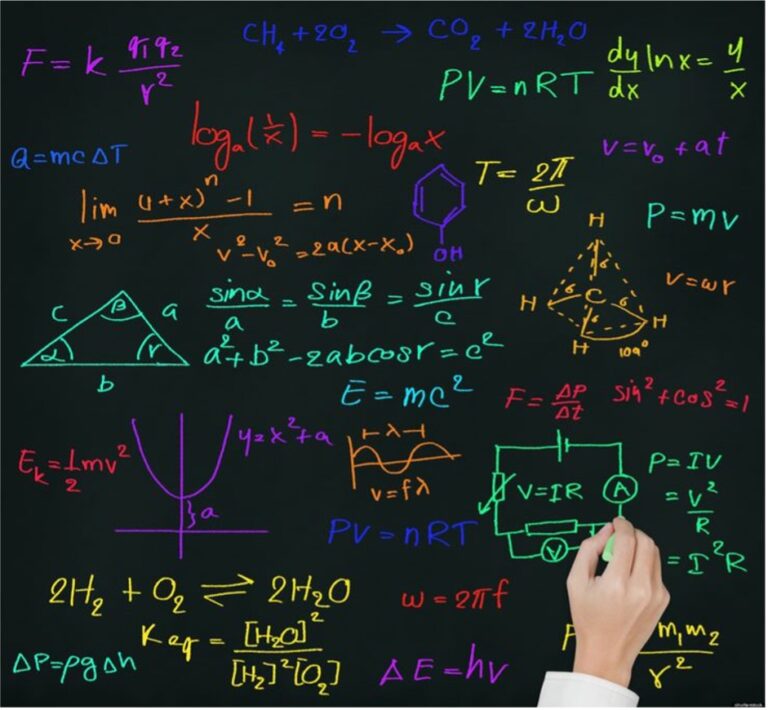 CH₄ + 2O₂ → CO₂ + 2H₂O
F = k q₁q₂/r²
PV = nRT
dy/dx ln x = y/x
logₐ(1/x) = -logₐx
Q = mcΔT
v = v₀ + at
lim x→0 ((1+x)ⁿ - 1)/x = n
T = 2π/ω
OH
P = mv
v² - v₀² = 2a(x - x₀)
H
H
C
H
H
6
6
6
6
109°
v = ωr
c
β
a
α
r
b
sinα/a = sinβ/b = sinr/c
a² + b² - 2abcosr = c²
E = mc²
F = ΔP/Δt
sin² + cos² = 1
Eₖ = 1/2 mv²
y = x² + a
a
λ
v = fλ
V = IR
A
V
P = IV
= V²/R
= I²R
PV = nRT
2H₂ + O₂ ⇌ 2H₂O
ω = 2πf
Keq = [H₂O]²/[H₂]²[O₂]
ΔP = ρgΔh
ΔE = hv
F
m₁m₂/r²